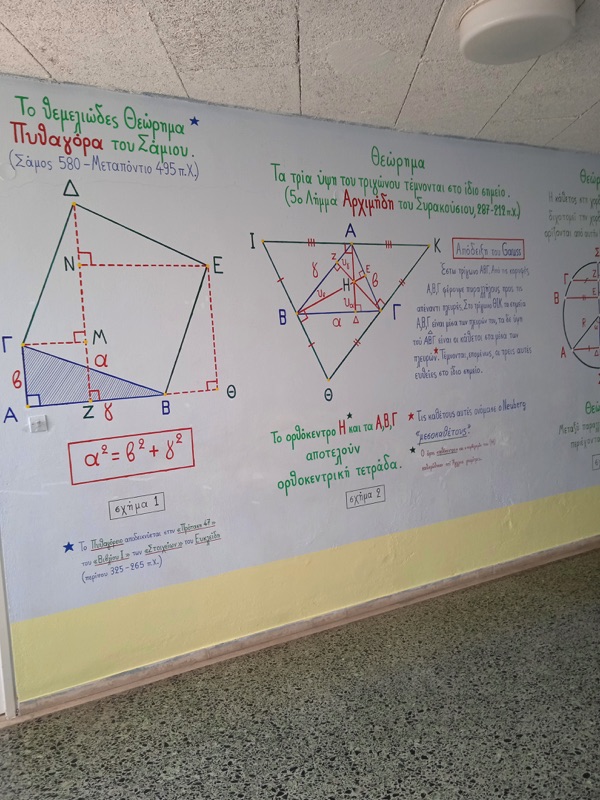 Το θεμελιώδες Θεώρημα
Πυθαγόρα του Σάμιου.
(Σάμος 580 - Μεταπόντιο 495 π.Χ.)
Δ
Ν
Ε
Γ
Μ
α
β
Α
Ζ
γ
Β
Θ
α² = β² + γ²
σχήμα 1
Το Πυθαγόρειο αποδεικνύεται στην «Πρόταση 47»
του «Βιβλίου Ι» των «Στοιχείων» του Ευκλείδη
(περίπου 325-265 π.Χ.)
Θεώρημα
Τα τρία ύψη του τριγώνου τέμνονται στο ίδιο σημείο.
(5ο Λήμμα Αρχιμήδη του Συρακούσιου, 287-212 π.Χ.)
Ι
Α
Κ
Ζ
Ε
γ
Η
β
Β
Γ
α
Δ
Θ
Το ορθόκεντρο Η και τα Α,Β,Γ
αποτελούν
ορθοκεντρική τετράδα.
σχήμα 2
Απόδειξη του Gauss
Έστω τρίγωνο ΑΒΓ. Από τις κορυφές
Α,Β,Γ φέρουμε παραλλήλους προς τις
απέναντι πλευρές. Στο τρίγωνο ΘΙΚ τα σημεία
Α,Β,Γ είναι μέσα των πλευρών του, τα δε ύψη
του ΑΒΓ είναι οι κάθετοι στα μέσα των
πλευρών. Τέμνονται, επομένως, οι τρεις αυτές
ευθείες στο ίδιο σημείο.
Τις καθέτους αυτές ονόμασε ο Neuberg
«μεσοκαθέτους.»
Ο όρος
Γ
Β
Α
R